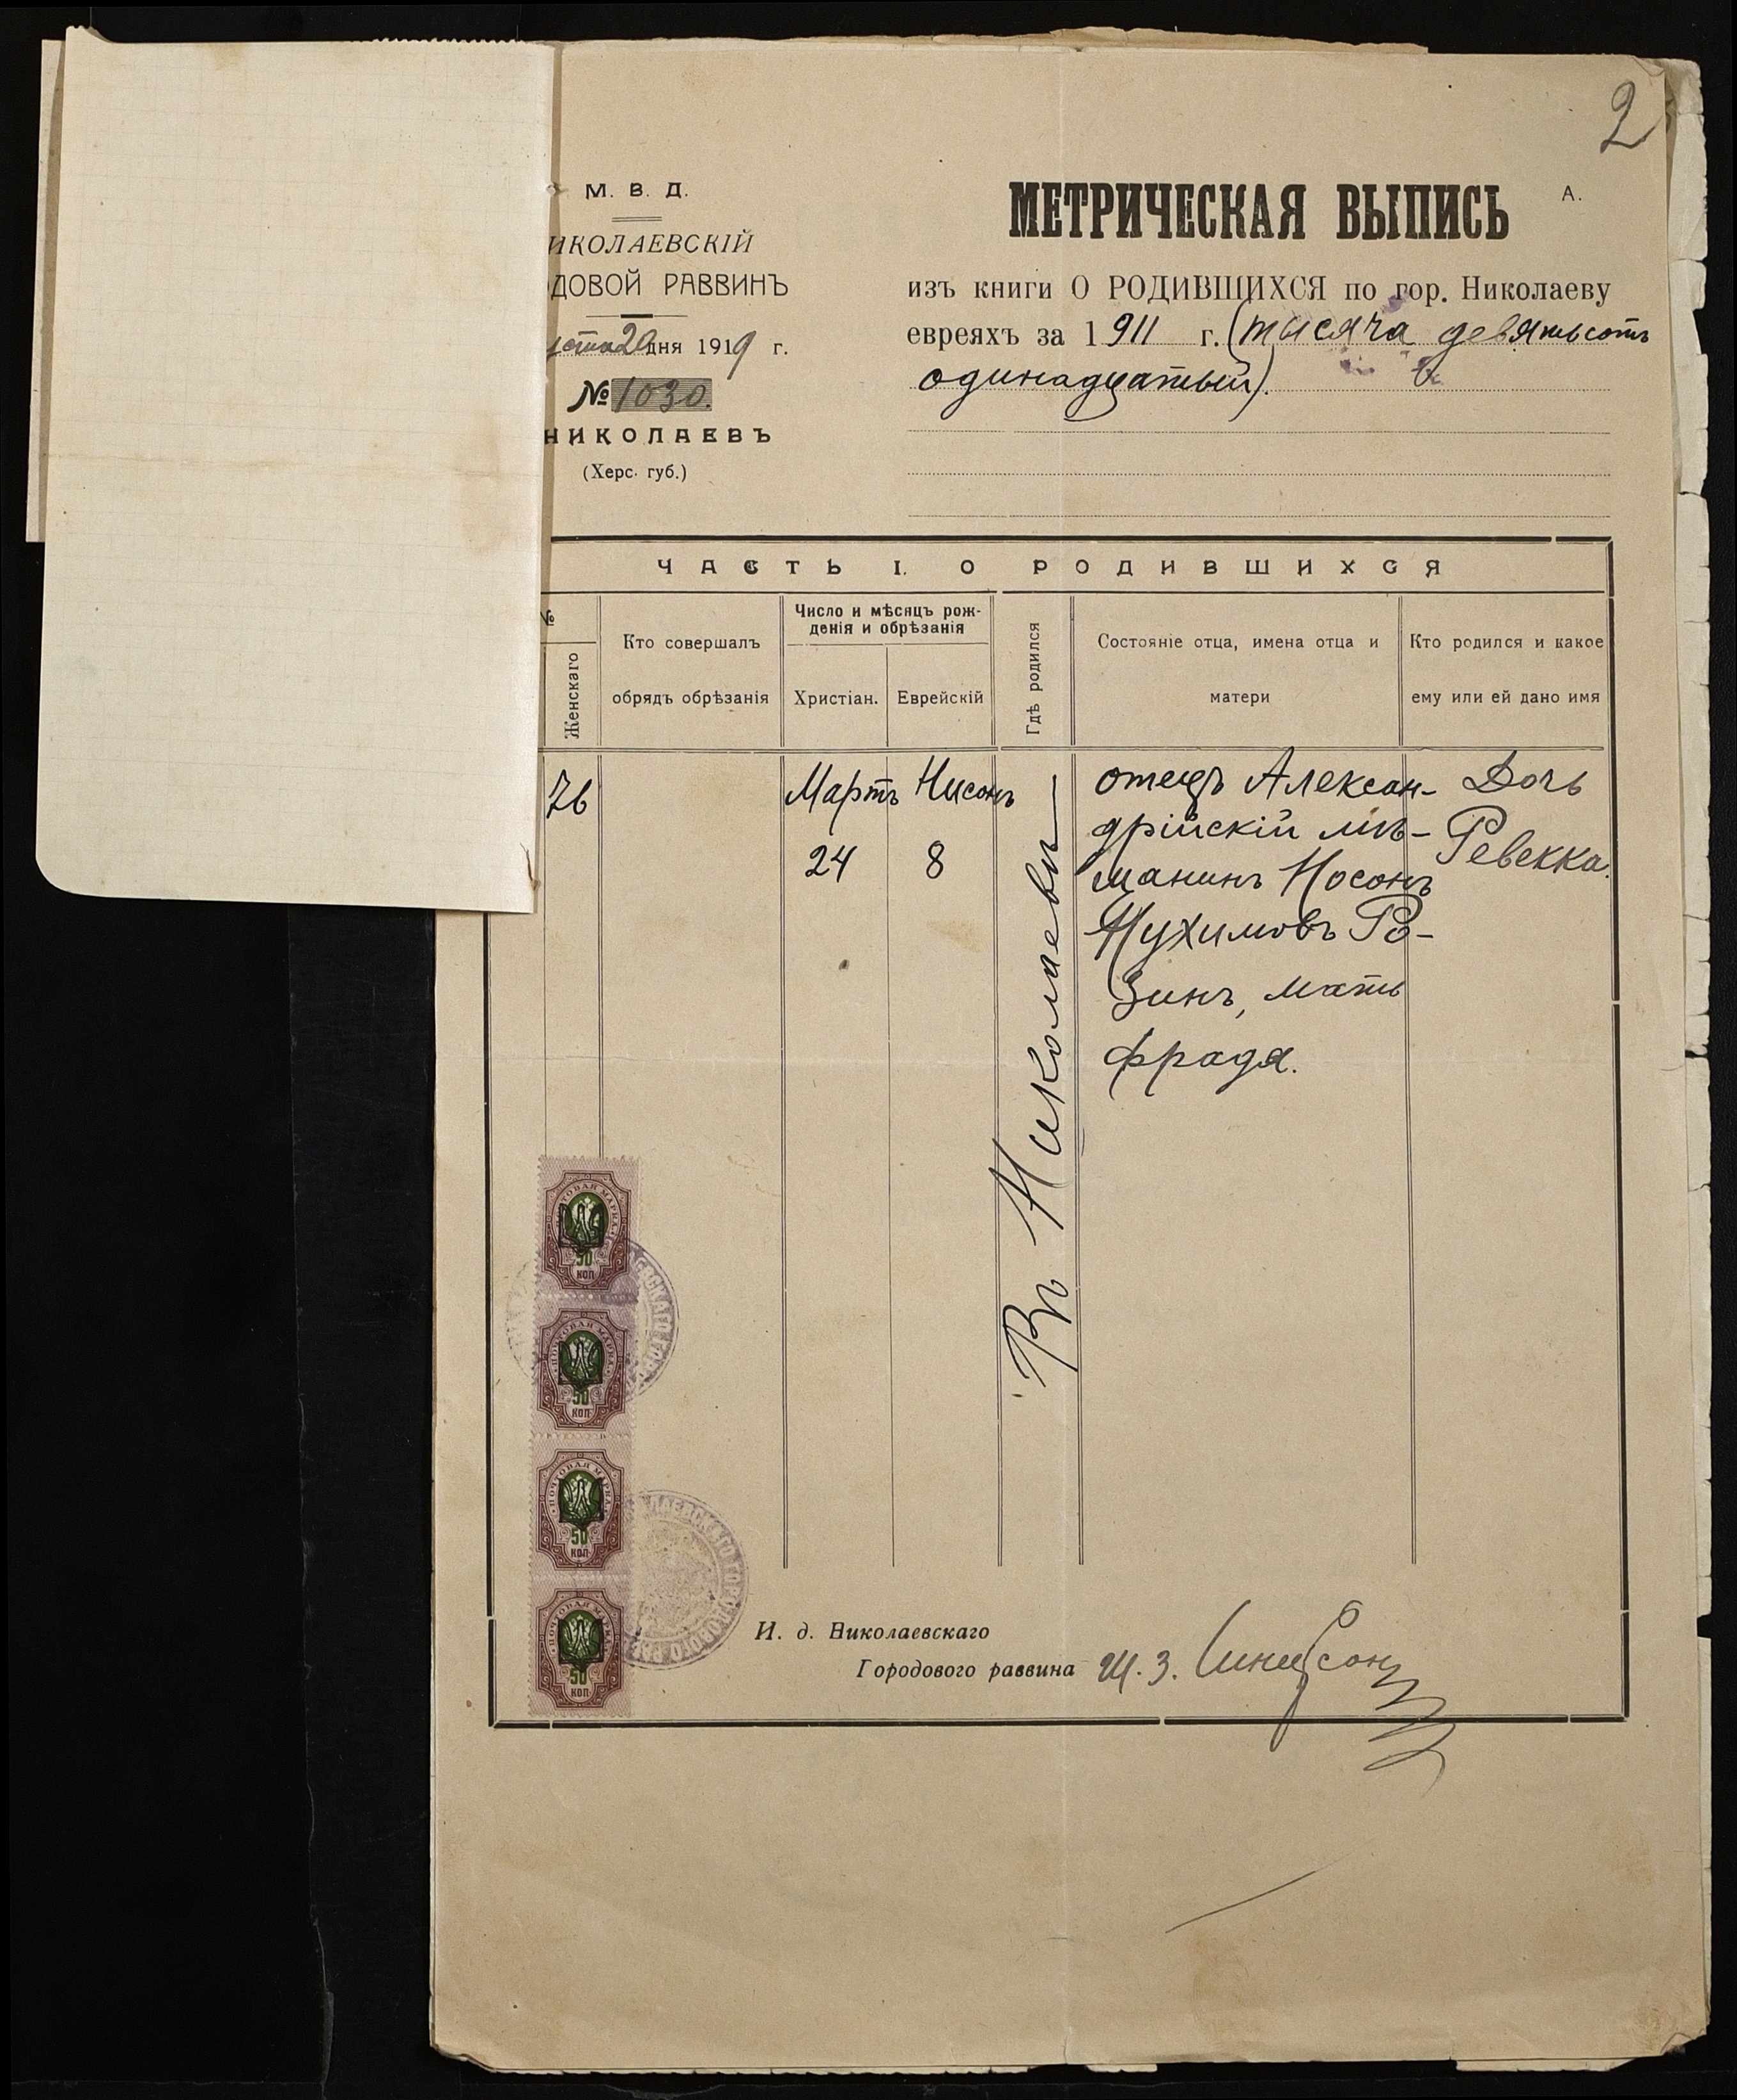 2
М. В. Д.
ИКОЛАЕВСКІЙ
ДОВОЙ РАВВИНЪ
уста 20 дня 1919 г.
№ 1030.
НИКОЛАЕВЪ
(Херс. губ.)
МЕТРИЧЕСКАЯ ВЫПИСЬ
А.
изъ книги О РОДИВШИХСЯ по гор. Николаеву
евреяхъ за 1911 г. (тысяча девятьсотъ
одинадцатый).
ЧАСТЬ I. О РОДИВШИХСЯ
№
Женскаго
Кто совершалъ
обрядъ обрѣзанія
Число и мѣсяцъ рож-
денія и обрѣзанія
Христіан.
Еврейскій
Гдѣ родился
Состояніе отца, имена отца и
матери
Кто родился и какое
ему или ей дано имя
76
Мартъ
24
Нисонъ
8
Въ Николаевѣ
отецъ Алексан-
дрійскій мѣ-
щанинъ Носонъ
Нухимовъ Ро-
зинъ, мать
Фрадя.
Дочь
Ревекка.
ПОЧТОВАЯ МАРКА
50
КОП
ПОЧТОВАЯ МАРКА
50
КОП
ПОЧТОВАЯ МАРКА
50
КОП
ПОЧТОВАЯ МАРКА
50
КОП
ЛАЕВСКАГО ГОРОДОВОГО РАВ
И. д. Николаевскаго
Городового раввина